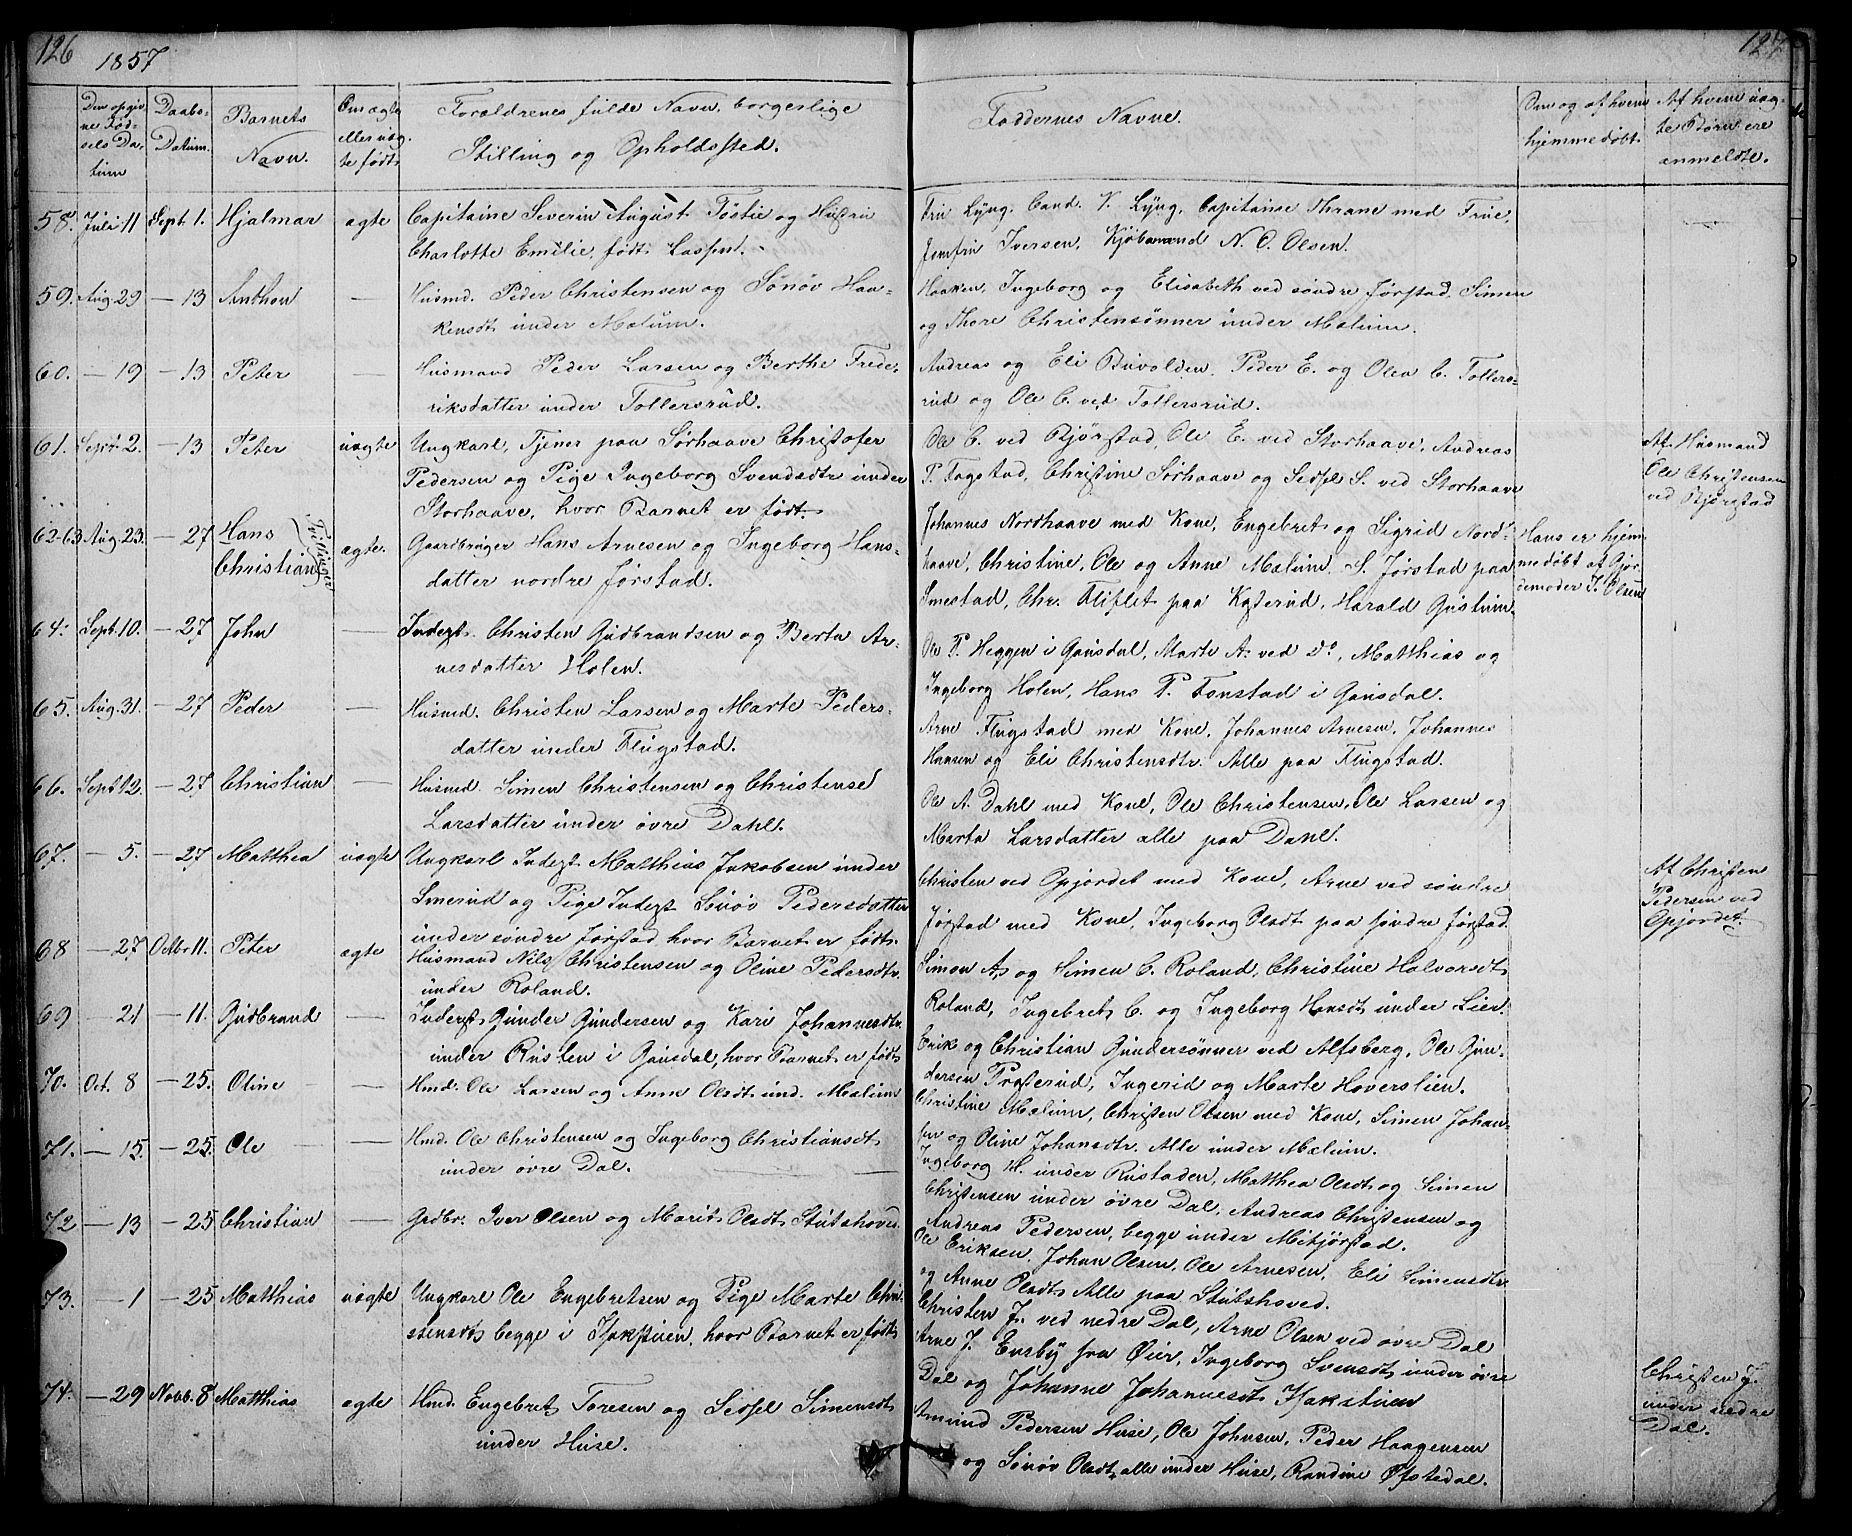 126
1857
127
Den opgiv
ne Fød-
sels Da-
tum
Daabs-
Datum.
Barnets
Navn.
Om ægte
eller uæg-
te født.
Forældrenes fulde Navn, borgerslige
Stilling og Opholdssted.
Faddernes Navne.
Om og af hvem
hjemmedøbt.
Af hvem uæg-
te Børn ere
anmeldte.
58. Juli 11 Sept. 1. Hjalmar ægte Capitaine Severin August Tostie og Hustru
Charlotte Emilie, født
Fru Lyng, Cand. V. Lyng, Capitaine Thrane med Frue,
Jomfru Iversen, Kjøbmand N. O. Olsen.
59. Aug. 29 — 13 Anthon — Husmd. Peder Christensen og Sønøv Haa-
kensdt under Mælum.
Haaken, Ingeborg og Elisabeth ved søndre Jørstad, Simen
og Thore Christensønner under Mælum.
60. — 19 — 13 Peter — Husmand Peder Larsen og Berthe Frede-
riksdatter under Tollersrud.
Andreas og Eli Buvolden, Peder E. og Olea C. Tollers-
rud og Ole C. ved Tollersrud.
61. Sept. 2. — 13 Peter uægte Ungkarl, Tjener paa Sørhaave Christofer
Pedersen og Pige Ingeborg Svendsdtr under
Storhaave, hvor Barnet er født.
Ole C. ved Bjørstad, Ole E. ved Storhaave, Andreas
P. Fogstad, Christine Sørhaave og Sidsel S. ved Storhaave
Af Husmand
Ole Christensen
ved Bjørstad
62-63 Aug. 23. — 27 Hans
Christian
Tvillinger
ægte. Gaardbruger Hans Arnesen og Ingeborg Hans-
datter nordre Jørstad.
Johannes Nordhaave med Kone, Engebret og Sigrid Nord-
haave, Christine, Ole og Anne Mælum, S. Jørstad paa
Smestad, Chr. Fliflet paa Kysterud, Harald Gustum.
Hans er hjem-
medøbt af Gjor-
demoder I. Olsen
64. Sept. 10. — 27 John — Inderst. Christen Gudbrandsen og Berta Ar-
nesdatter Holen.
Ole P. Heggen i Gausdal, Marte A. ved Do, Matthias og
Ingeborg Holen, Hans P. Fonstad i Gausdal.
65. Aug. 31. — 27 Peder — Husmd. Christen Larsen og Marte Peders-
datter under Flugstad.
Arne Flugstad med Kone, Johannes Arnesen, Johannes
Hansen og Eli Christensdtr. Alle paa Flugstad.
66. Sept. 12. — 27 Christian — Husmd. Simen Christensen og Christense
Larsdatter under øvre Dahl.
Ole A. Dahl med Kone, Ole Christensen, Ole Larsen og
Marta Larsdatter alle paa Dahl.
67. — 5. — 27 Matthea uægte Ungkarl Inderst Matthias Jakobsen under
Smerud og Pige Inderst Sønøv Pedersdatter
under søndre Jørstad, hvor Barnet er født.
Christen ved Opjordet med Kone, Arne ved søndre
Jørstad med Kone, Ingeborg Olsdt paa søndre Jørstad.
Af Christen
Pedersen ved
Opjordet.
68 — 27 Octbr 11. Peter ægte Husmand Nils Christensen og Oline Pedersdtr.
under Roland.
Simon A. og Simen C. Roland, Christine Halvorsdt
Roland, Ingebret C. og Ingeborg Hansdt under Lien.
69 — 21 — 11. Gudbrand — Inderst Gunder Gundersen og Kari Johannesdtr.
under Rusten i Gausdal, hvor Barnet er født
Erik og Christian Gundersønner ved Alfsberg, Ole Gun-
dersen Præsterud, Ingerid og Marte Hoverslien.
70. Oct. 8 — 25. Oline — Hmd. Ole Larsen og Anne Olsdt und. Mælum
Christine Mælum, Christen Olsen med Kone, Simen Johan-
sen og Oline Johansdtr. Alle under Mælum.
71. — 15. — 25. Ole — Hmd. Ole Christensen og Ingeborg Christiansdt
under øvre Dal.
Ingeborg H. under Rustaden, Matthea Olsdt og Simen
Christensen under øvre Dal, Andreas Christensen og
Andreas Pedersen, begge under Mitjørstad.
72 — 13 — 25 Christian — Grdbr. Iver Olsen og Marit Olsdt Stutshoved.
Ole Eriksen, Johan Olsen, Ole Arnesen, Eli Simensdtr
og Anne Olsdt, Alle paa Stutshoved.
73. — 1 — 25 Matthias uægte Ungkarl Ole Engebretsen og Pige Marte Chri-
stensdt, begge i Hakstuen, hvor Barnet er født
Christen J. ved nedre Dal, Arne Olsen ved øvre Dal
Arne J. Ensby fra Øier, Ingeborg Svensdt under øvre
Dal og Johanne Johannesdt Hakstuen
Christen J.
under nedre
Dal.
74. — 29 Novb. 8 Matthias ægte Hmd. Engebret Toresen og Sidsel Simensdt
under Huse.
Amund Pedersen Huse, Ole Johnsen, Peder Haagensen
og Sønøv Olsdt, alle under Huse, Randine Øfstedal.